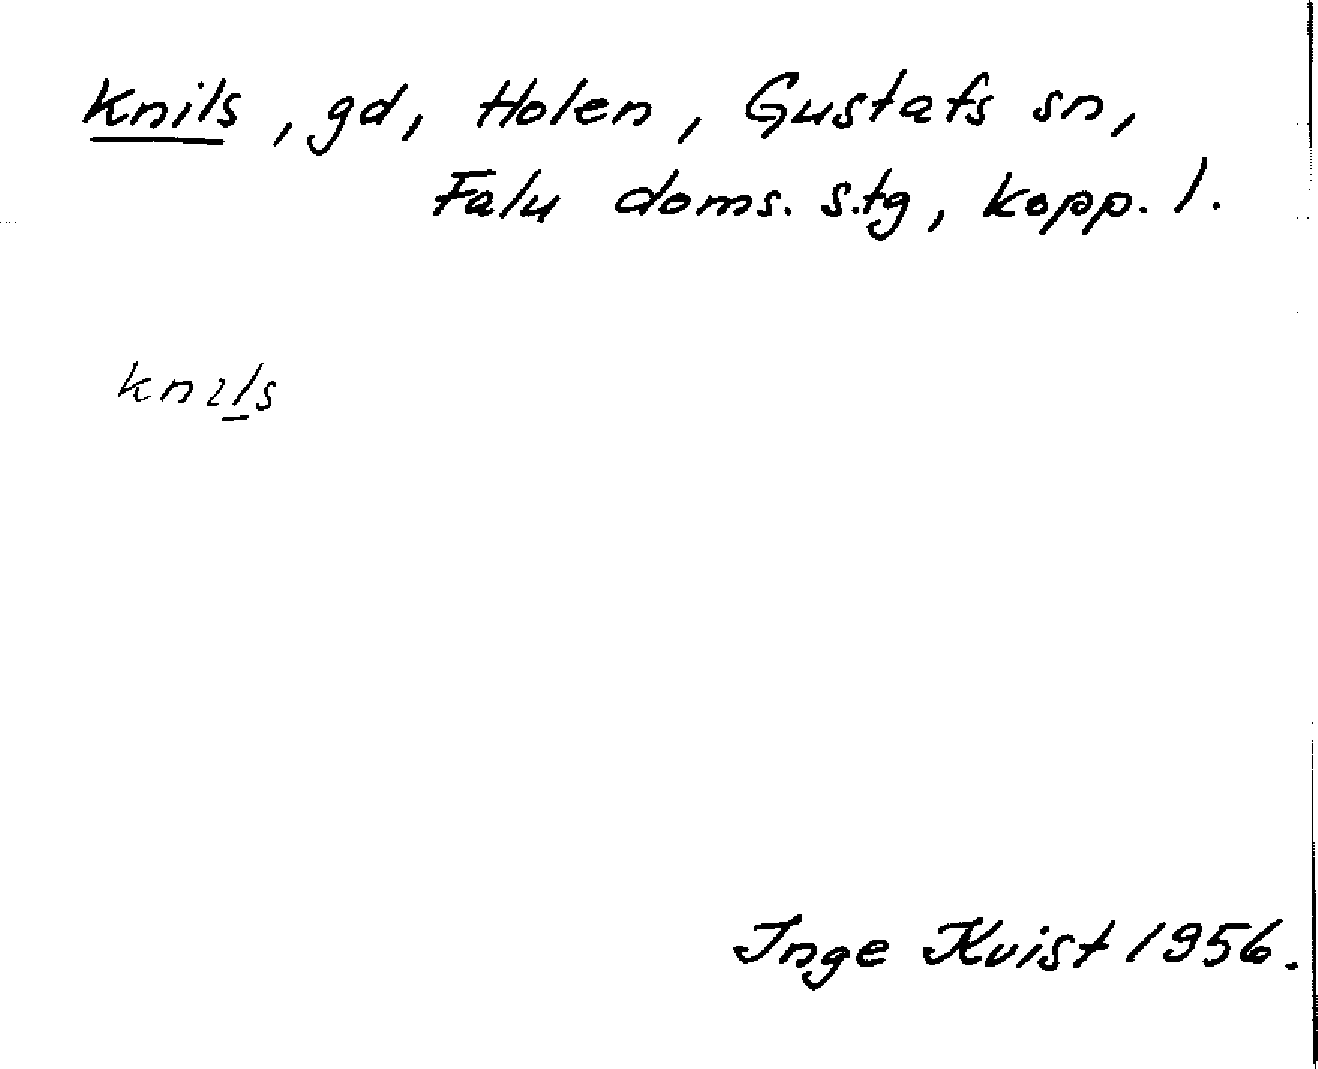 Knils, gd, Holen, Gustafs sn,
Falu doms. s.tg, Kopp. l.
knils
Inge Kvist 1956.